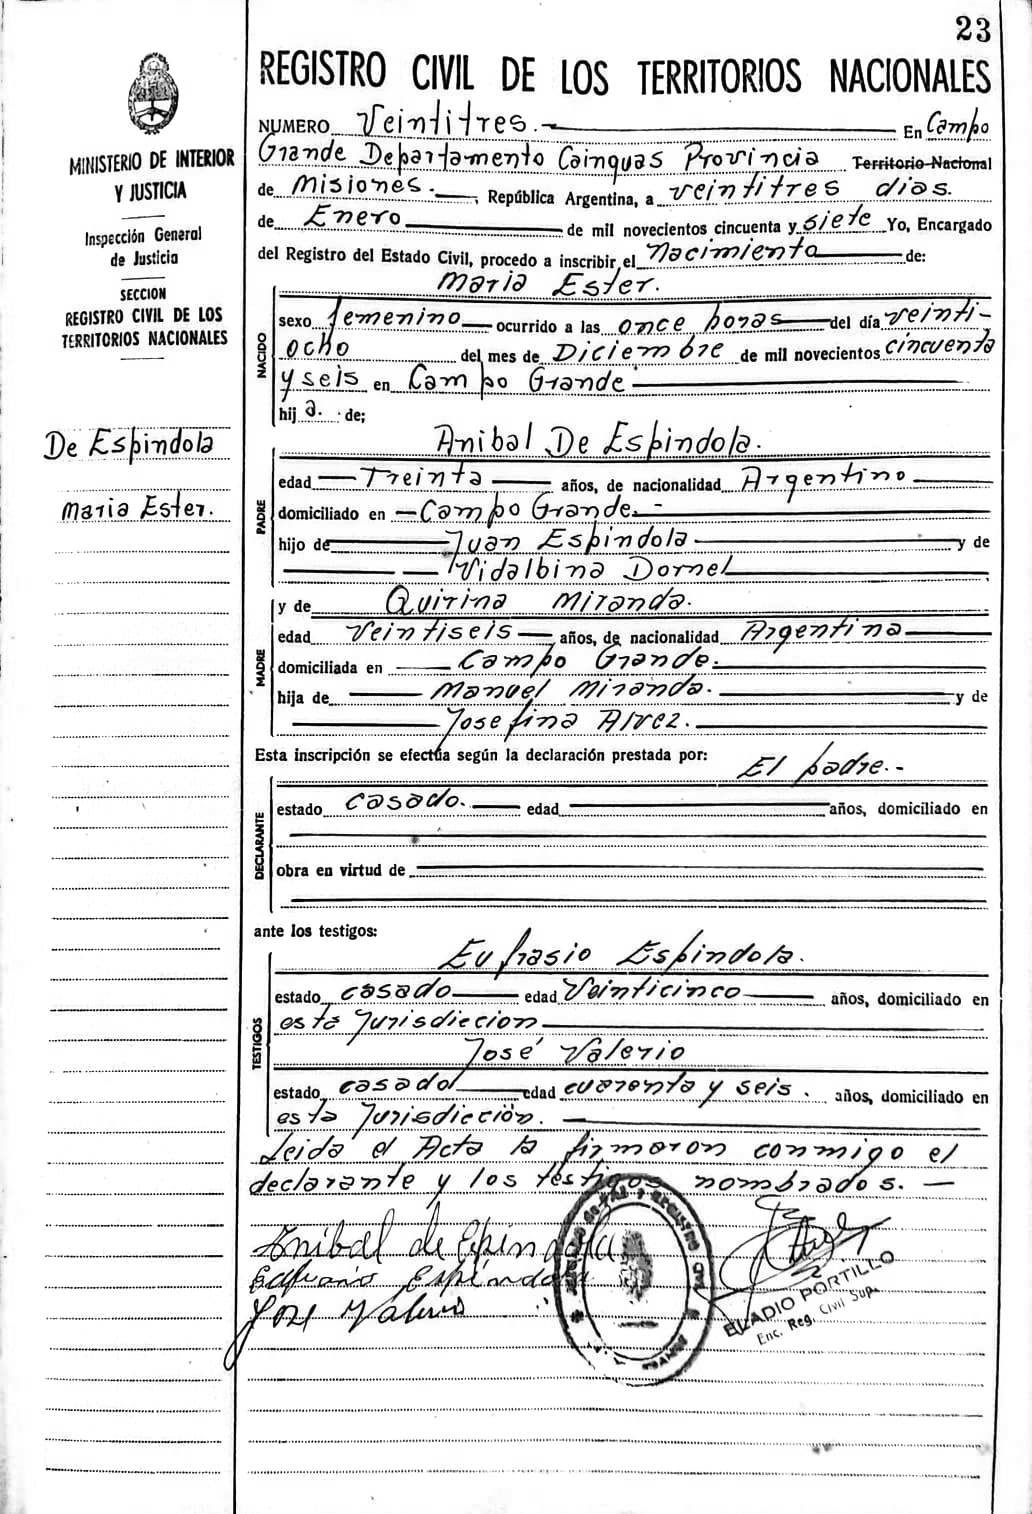 23
REGISTRO CIVIL DE LOS TERRITORIOS NACIONALES
MINISTERIO DE INTERIOR
Y JUSTICIA
Inspección General
de Justicia
SECCION
REGISTRO CIVIL DE LOS
TERRITORIOS NACIONALES
De Espindola
Maria Ester.
NUMERO Veintitres.- En Campo
Grande Departamento Cainguas Provincia Territorio Nacional
de Misiones.- República Argentina, a veintitres dias.
de Enero de mil novecientos cincuenta y siete Yo, Encargado
del Registro del Estado Civil, procedo a inscribir el Nacimiento de:
Maria Ester.
NACIDO
sexo femenino ocurrido a las once horas del día veinti-
ocho del mes de Diciembre de mil novecientos cincuenta
y seis en Campo Grande
hij a. de;
Anibal De Espindola.
PADRE
edad Treinta años, de nacionalidad Argentino
domiciliado en Campo Grande.-
hijo de Juan Espindola y de
Vidalbina Dornel
y de Quirina Miranda.
MADRE
edad Veintiseis años, de nacionalidad Argentina
domiciliada en Campo Grande.
hija de Manuel Miranda. y de
Josefina Alvez.
Esta inscripción se efectúa según la declaración prestada por: El padre.-
DECLARANTE
estado casado. edad años, domiciliado en
obra en virtud de
ante los testigos:
Eufrasio Espindola.
TESTIGOS
estado casado edad Veinticinco años, domiciliado en
esta Jurisdiccion
José Valerio
estado casado edad cuarenta y seis. años, domiciliado en
esta Jurisdicción.
Leida el Acta la firmaron conmigo el
declarante y los testigos nombrados.-
Anibal de Espindola
Espindola
José Valerio
ELADIO PORTILLO
Enc. Reg. Civil Sup.